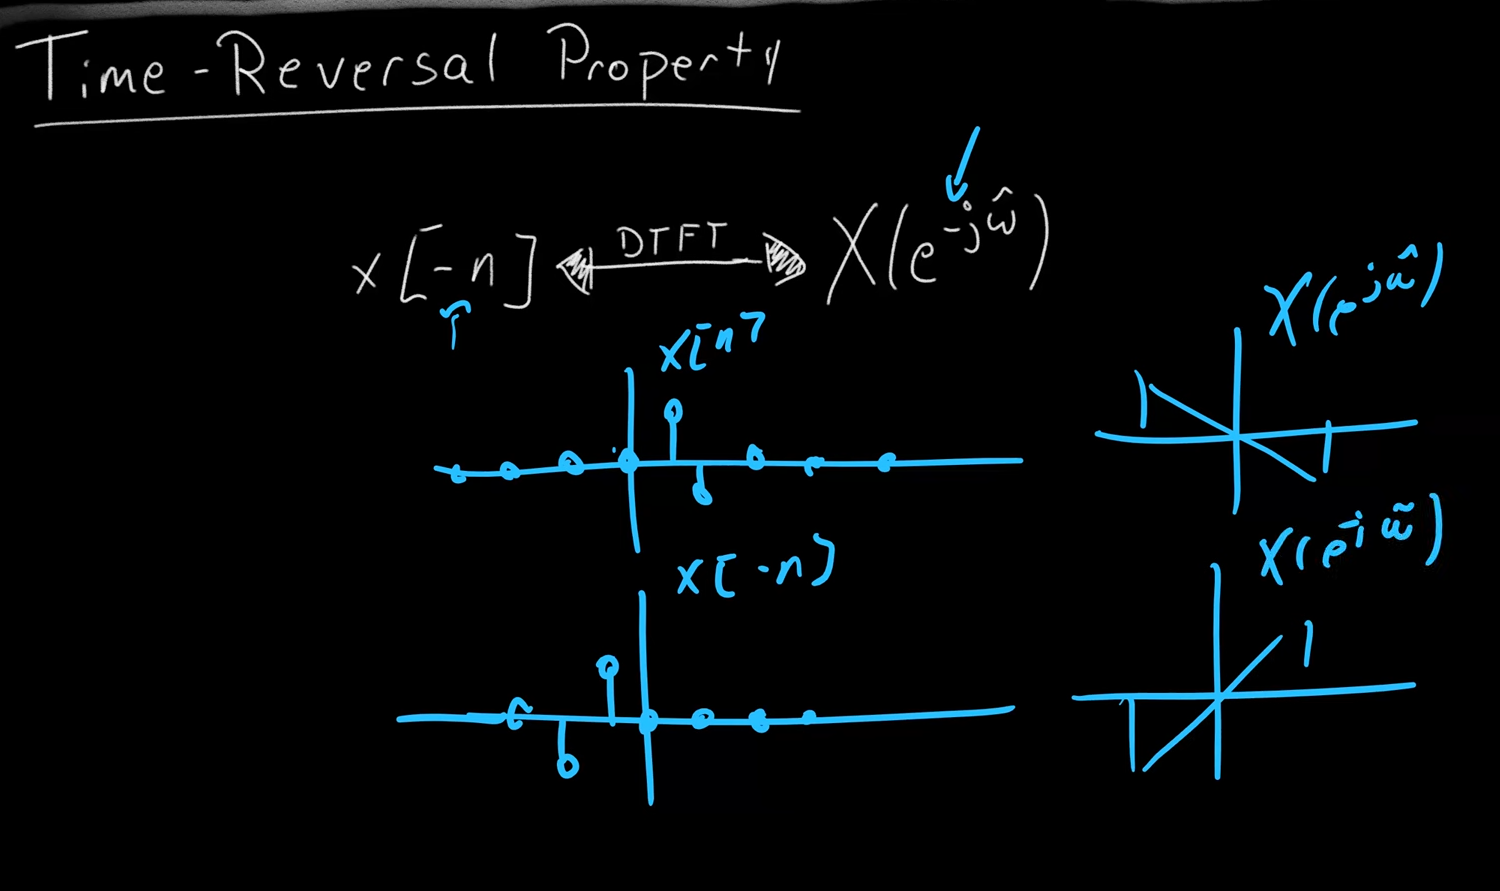 Time-Reversal Property
x[-n] DTFT X(e^{-jω̂})
X(e^{jω̂})
x[n]
x[-n]
X(e^{-jω̃})